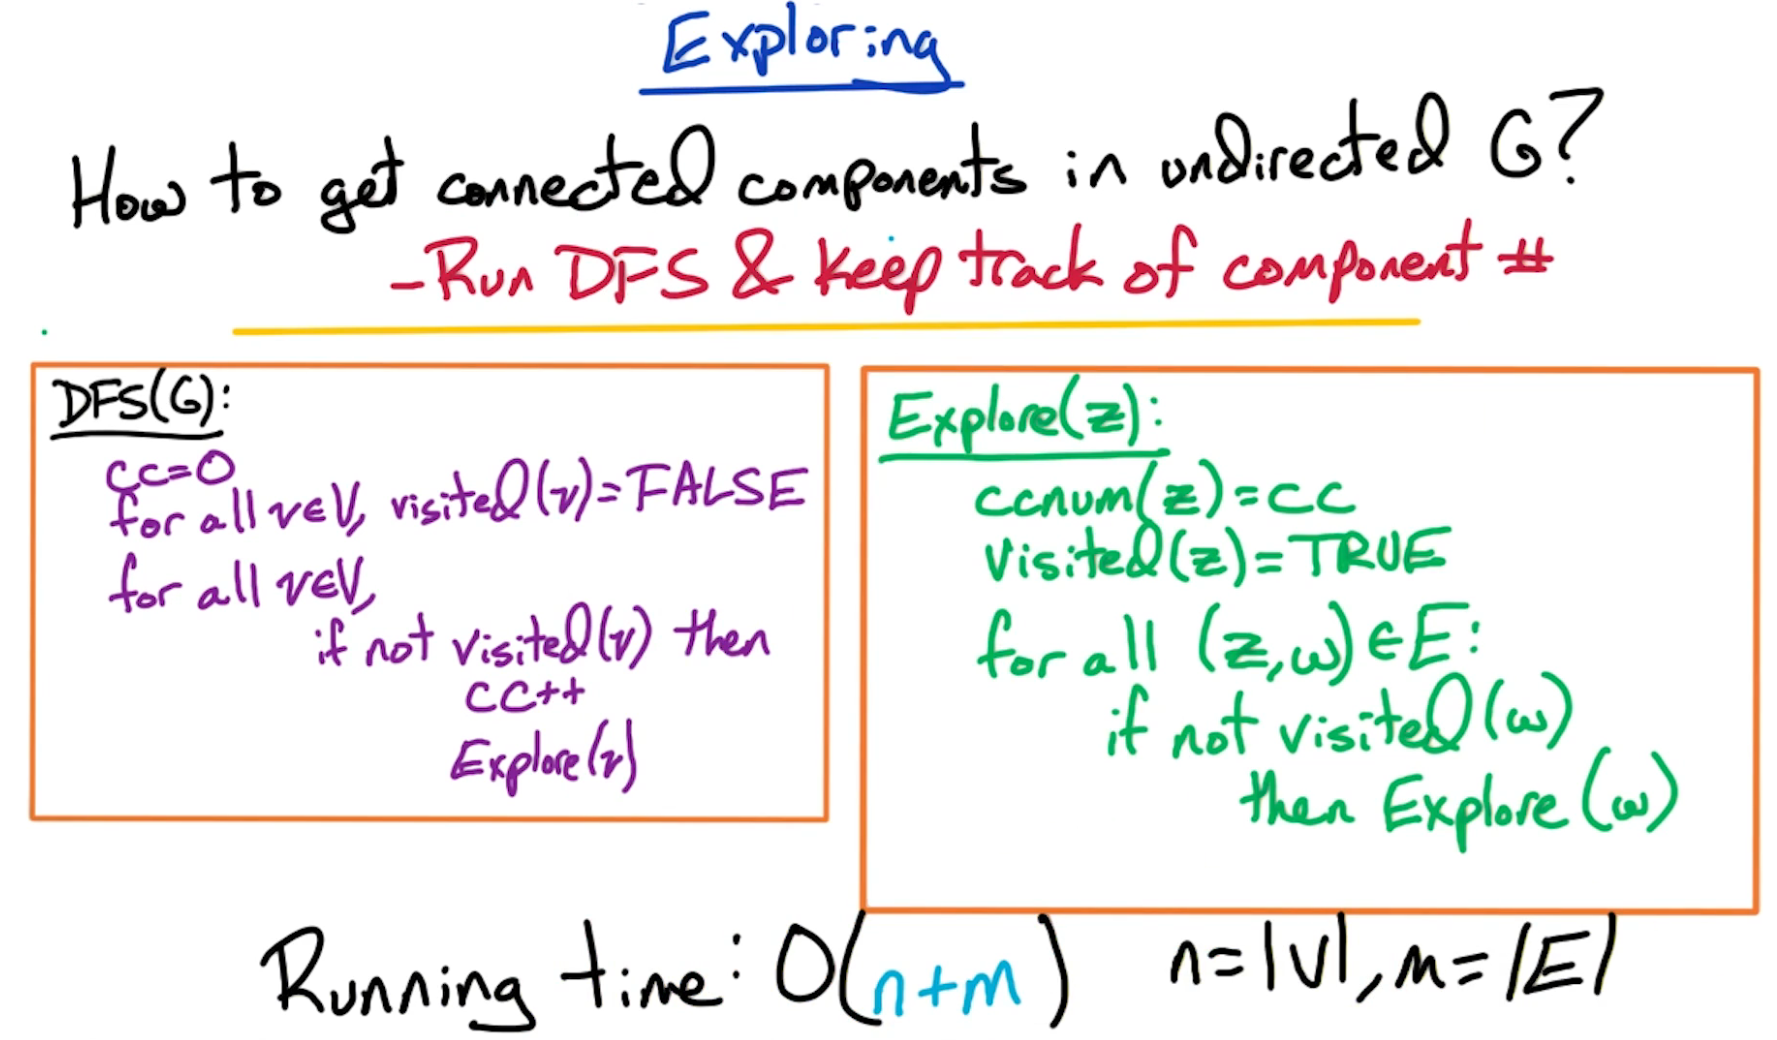 Exploring
How to get connected components in undirected G?
- Run DFS & keep track of component #
DFS(G):
cc=0
for all v∈V, visited(v)=FALSE
for all v∈V,
if not visited(v) then
cc++
Explore(v)
Explore(z):
ccnum(z)=cc
visited(z)=TRUE
for all (z,w)∈E:
if not visited(w)
then Explore(w)
Running time: O(n+m) n=|V|, m=|E|